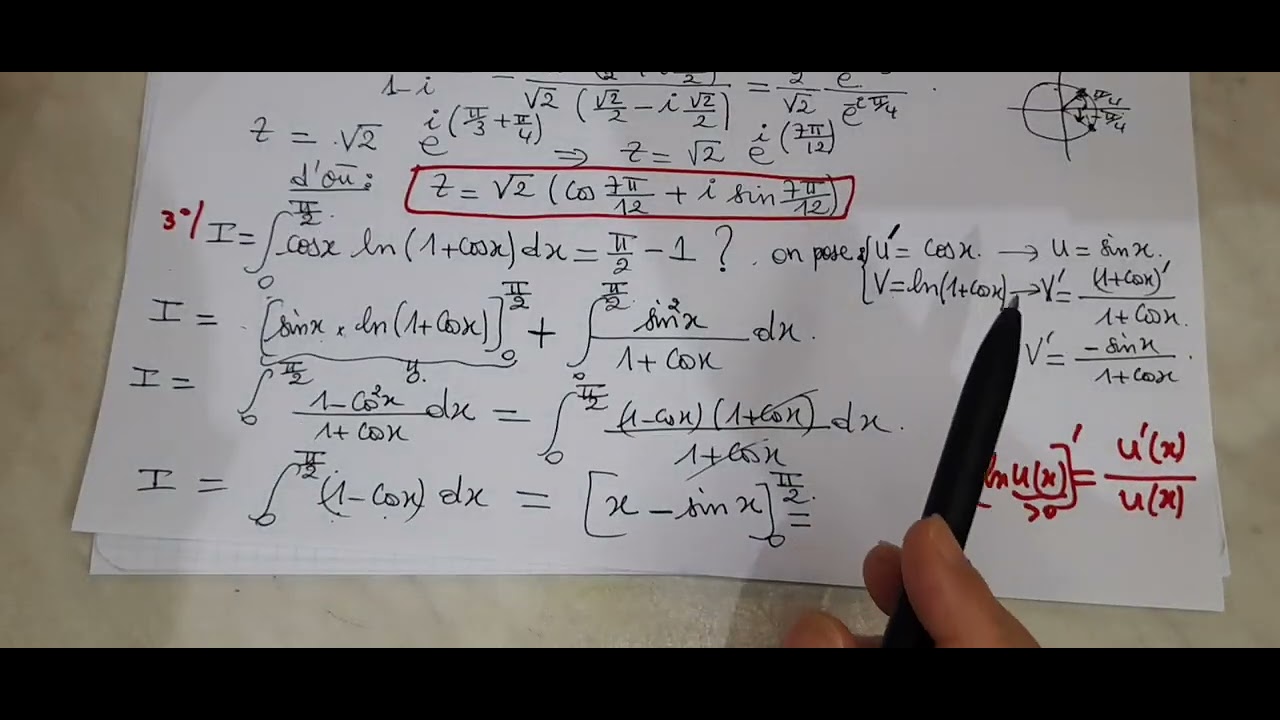 1-i = √2 (√2/2 - i √2/2) = 2/√2 e / e^iπ/4 .
Z = √2 e^i(π/3 + π/4) ⇒ Z = √2 e^i(7π/12)
d'où :
Z = √2 (cos 7π/12 + i sin 7π/12)
3°/ I = ∫₀^π/2 cosx ln(1+cosx) dx = π/2 - 1 ? . on pose { U' = cosx. → U = sinx.
V = ln(1+cosx) → V' = (1+cosx)' / 1+cosx.
V' = -sinx / 1+cosx .
I = [sinx × ln(1+cosx)]₀^π/2 + ∫₀^π/2 sin²x / 1+cosx dx.
0.
I = ∫₀^π/2 1-cos²x / 1+cosx dx = ∫₀^π/2 (1-cosx)(1+cosx) / 1+cosx dx.
I = ∫₀^π/2 (1-cosx) dx = [x - sinx]₀^π/2 =
ln U(x)]' = U'(x) / U(x)
>0